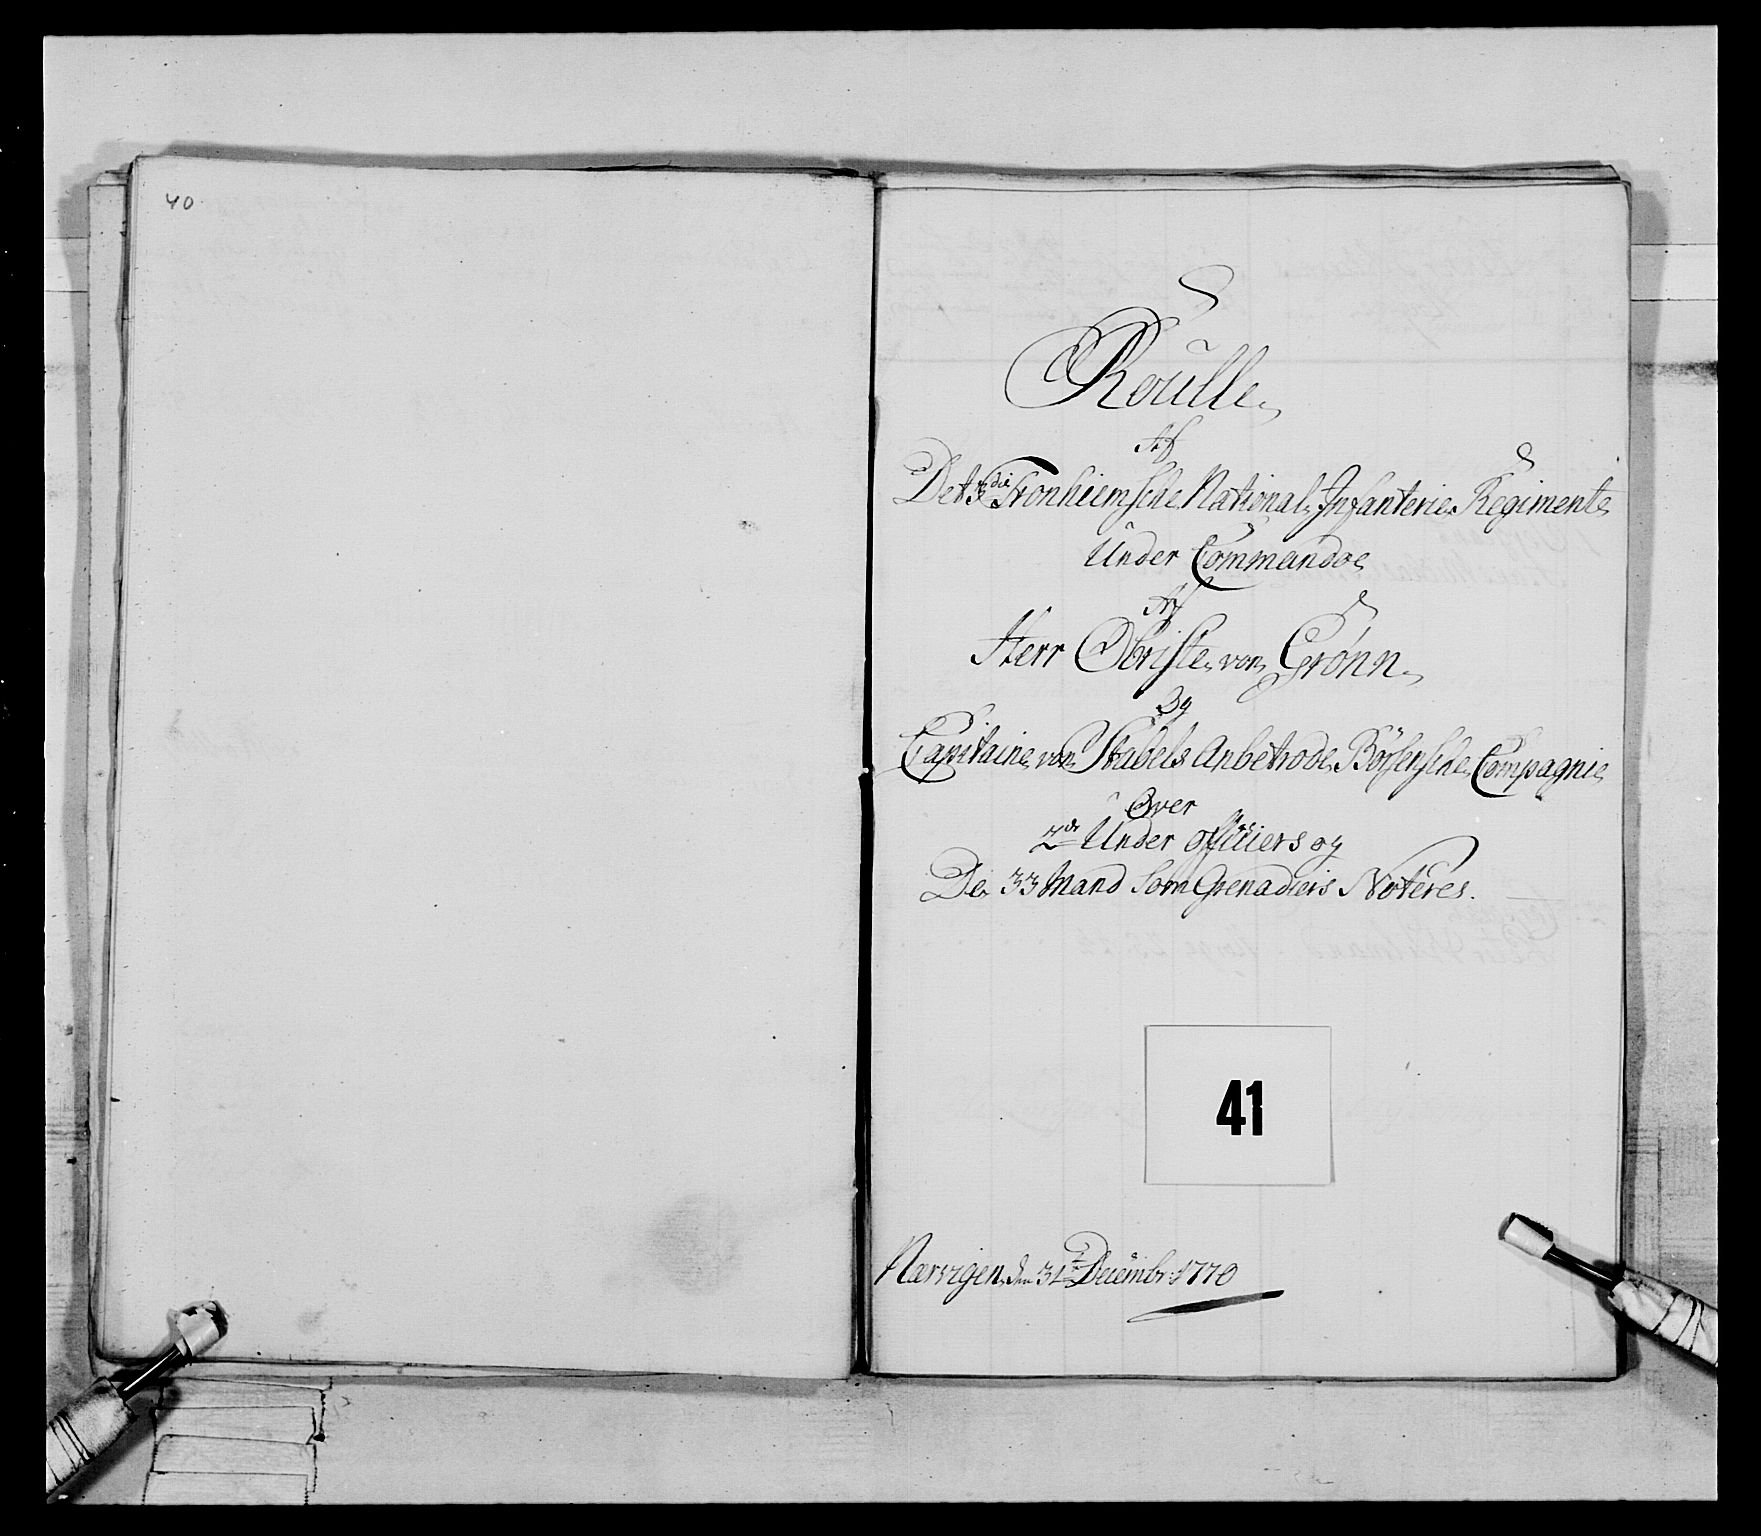 40
Roulle
Af
Det 3die Tronhiemsche National Infanterie Regimente
Under Commando
Af
Herr Obriste von Grønn
Og
Capitaine von Stabels Anbetrode Børsensche Compagnie
Over
2de Under officiers og
De 33 Mand Som Grenadiers Noteres.
41
Narvigen den 31te Decembr: 1770